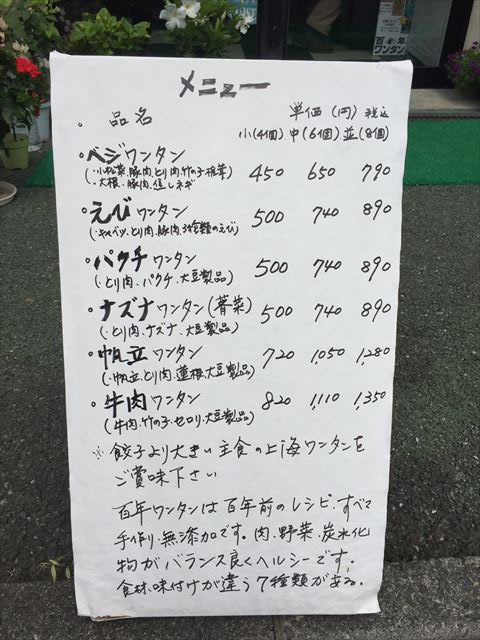 百年
ワンタン
メニュー
・品名 単価(円)税込
小(4個) 中(6個) 並(8個)
・ベジワンタン 450 650 790
(・小松菜、豚肉、とり肉、竹の子、椎茸)
・大根、豚肉、塩しネギ
・えびワンタン 500 740 890
(・キャベツ、とり肉、豚肉、3種類のえび)
・パクチワンタン 500 740 890
(・とり肉、パクチ、大豆製品)
・ナズナワンタン(薺菜) 500 740 890
(・とり肉、ナズナ、大豆製品)
・帆立ワンタン 720 1,050 1,280
(・帆立、とり肉、蓮根、大豆製品)
・牛肉ワンタン 820 1,110 1,350
(牛肉、竹の子、セロリ、大豆製品)
※餃子より大きい主食の上海ワンタンを
ご賞味下さい
百年ワンタンは百年前のレシピ、すべて
手作り、無添加です。肉、野菜、炭水化
物がバランス良くヘルシーです。
食材、味付けが違う7種類がある。